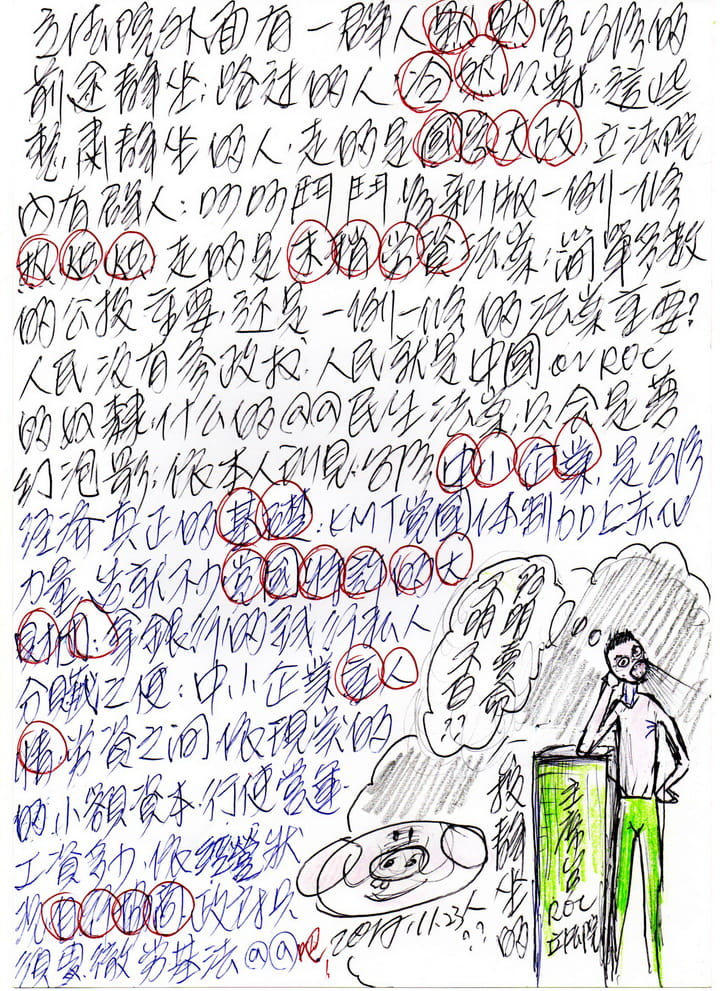 立法院外面有一群人默默為台灣的
前途靜坐；路过的人，冷然以對；這些
靜坐的人，走的是國家大政，立法院
內有群人；吵吵鬥鬥為新版一例一修
走的是末稍勞資法案；簡單多数
的公投重要，还是一例一修的法案重要？
人民没有參政权，人民就是中國 or ROC
的奴隸，什么的@@民生法案，只会是夢
幻泡影；依本人所見，台灣中小企業，是台灣
經济真正的基礎；KMT党國体制加上
力量，造就不少党國特許的大
財团；拿銀行的錢，行私人
分贓之便；中小企業家人
情，勞資之间依現实的
的小額資本，行使營運
工資多少，依經營狀
况自行協商，政府只
須要撤勞基法@@吧！
不明不白
主席台
ROC
立法院
投靜坐的
人??
2017.11.23